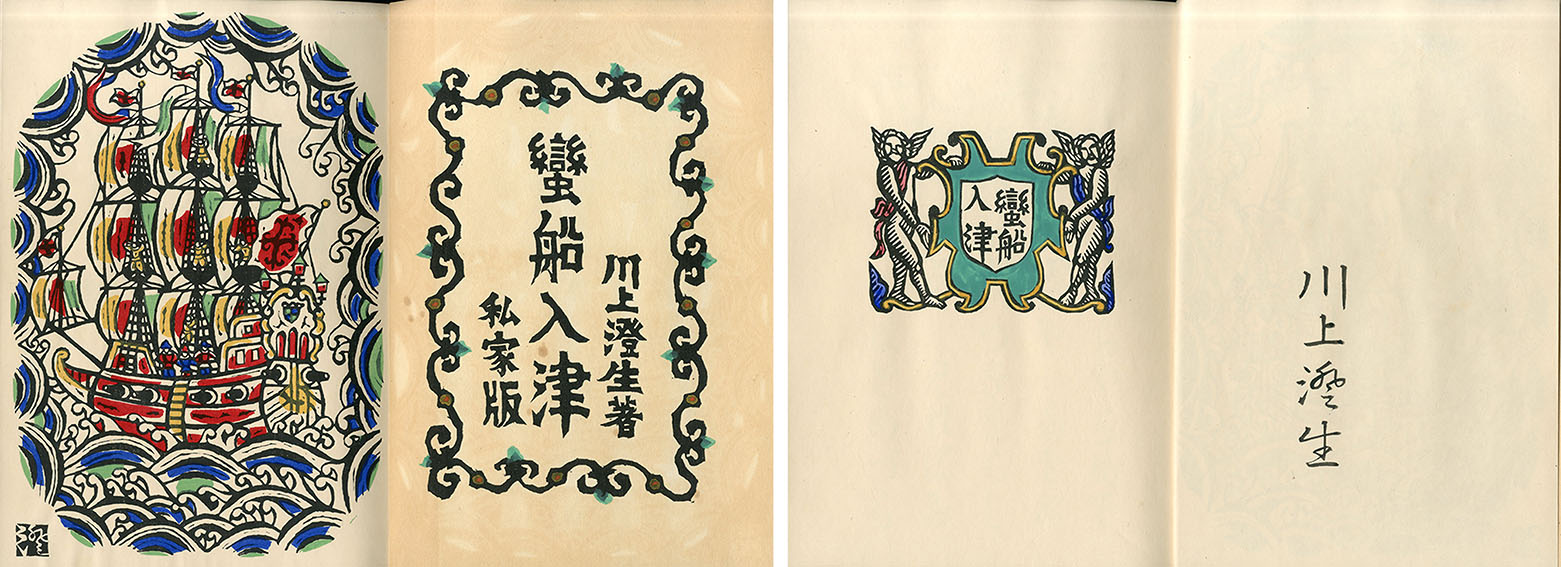 川上澄生著
蛮船入津
私家版
蛮船
入津
川上澄生